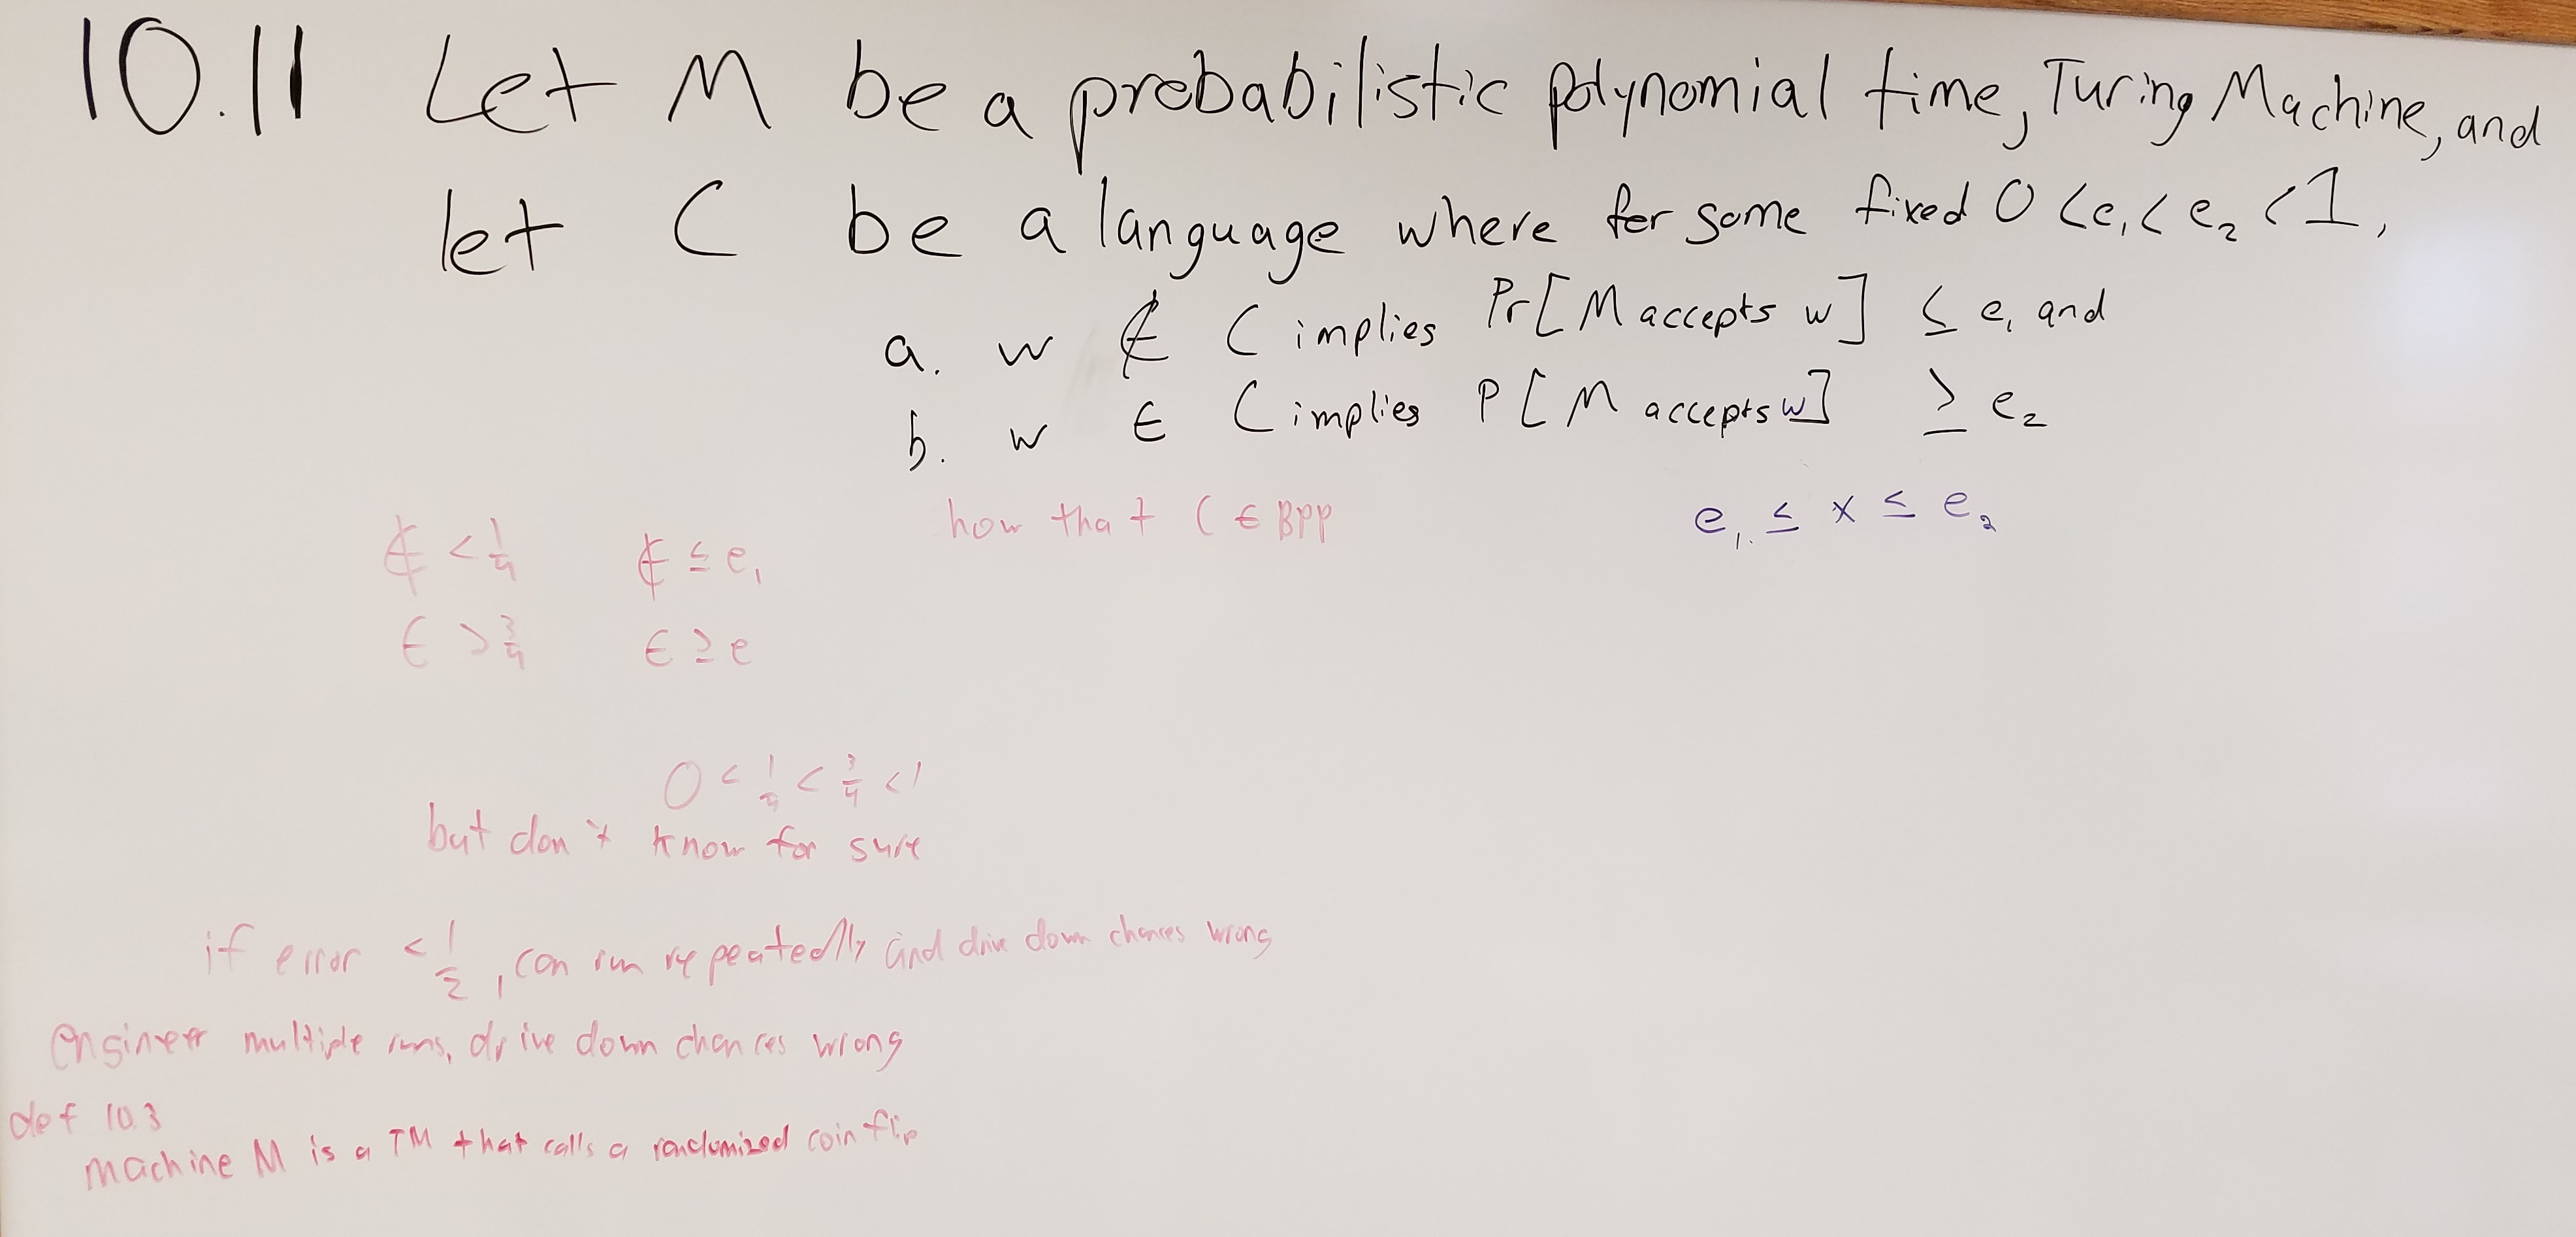 10.11 Let M be a probabilistic polynomial time, Turing Machine, and
let C be a language where for some fixed 0 < e₁ < e₂ < 1,
a. w ∉ C implies Pr[M accepts w] ≤ e₁ and
b. w ∈ C implies P[M accepts w] ≥ e₂
how that C ∈ BPP
e₁ ≤ x ≤ e₂
∉ < 1/4 ∉ ≤ e₁
∈ > 3/4 ∈ ≥ e
0 < 1/4 < 3/4 < 1
but don't know for sure
if error < 1/2, can run repeatedly and drive down chances wrong
engineer multiple runs, drive down chances wrong
def 10.3
machine M is a TM that calls a randomized coin flip